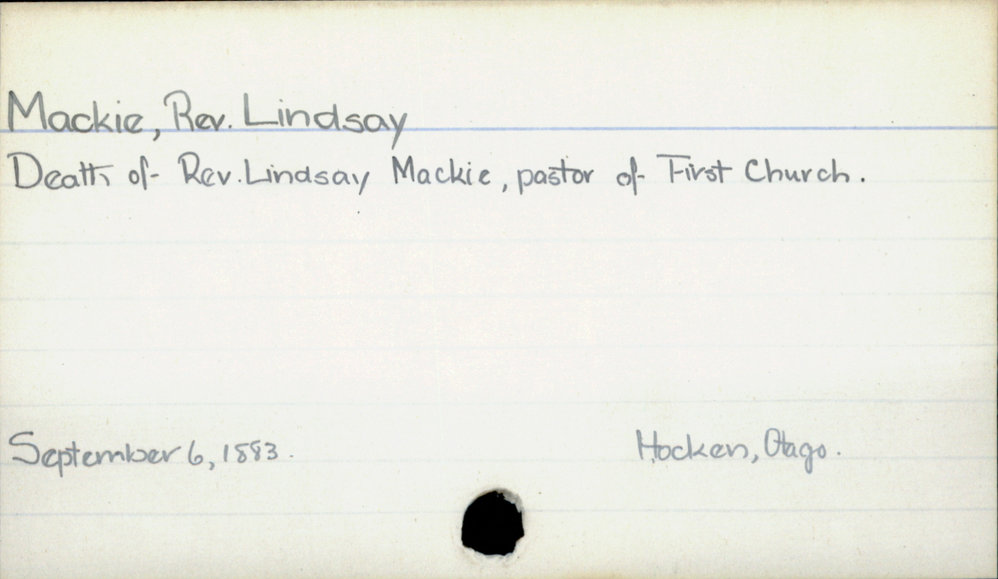 Mackie, Rev. Lindsay
Death of Rev. Lindsay Mackie, pastor of First Church.
September 6, 1883. Hocken, Otago.